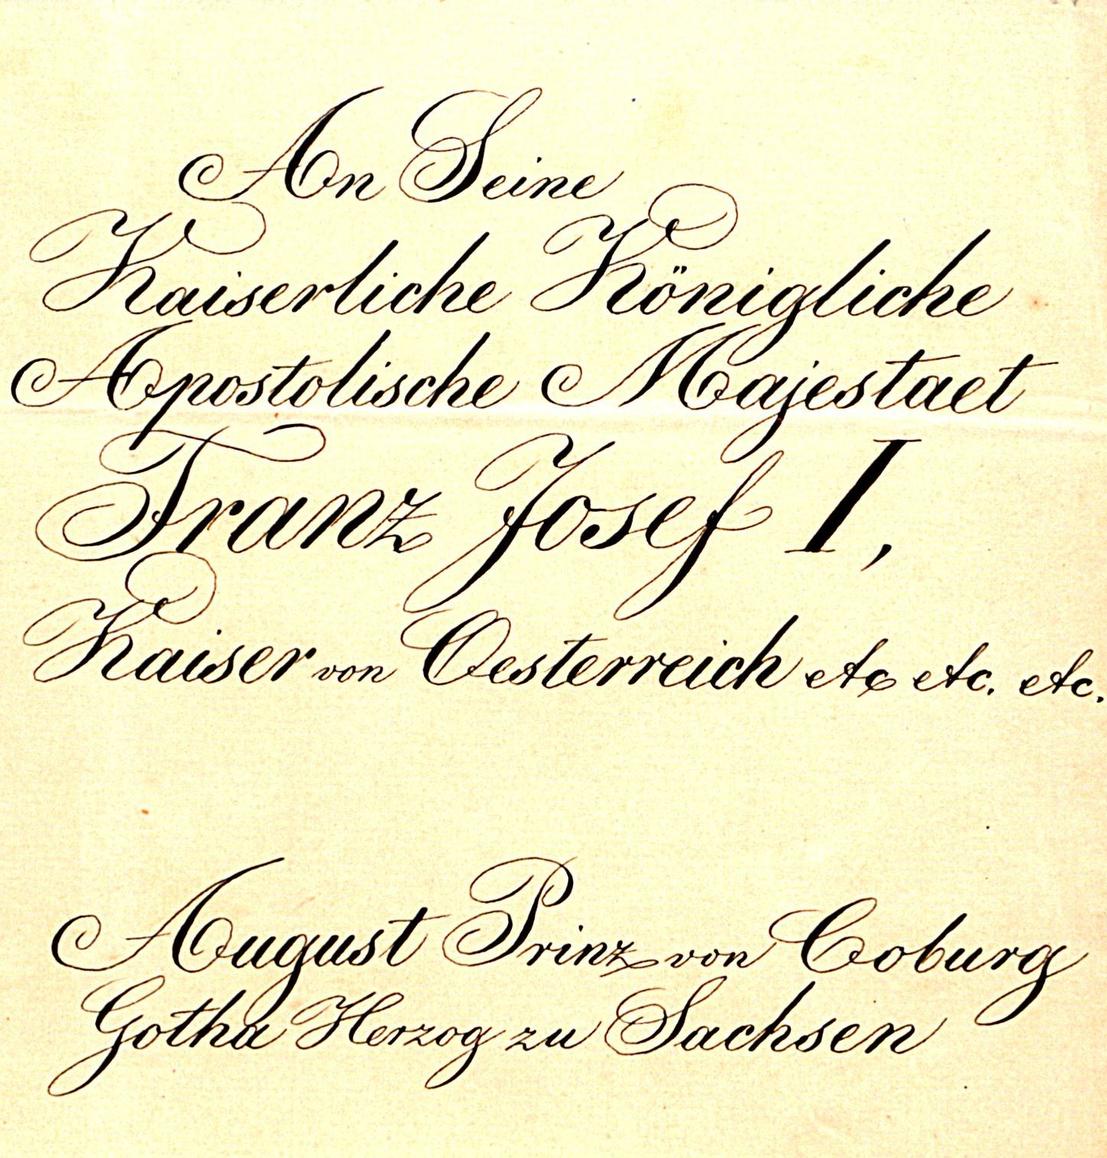 An Seine
Kaiserliche Königliche
Apostolische Majestaet
Franz Josef I,
Kaiser von Oesterreich etc etc. etc.
August Prinz von Coburg
Gotha Herzog zu Sachsen